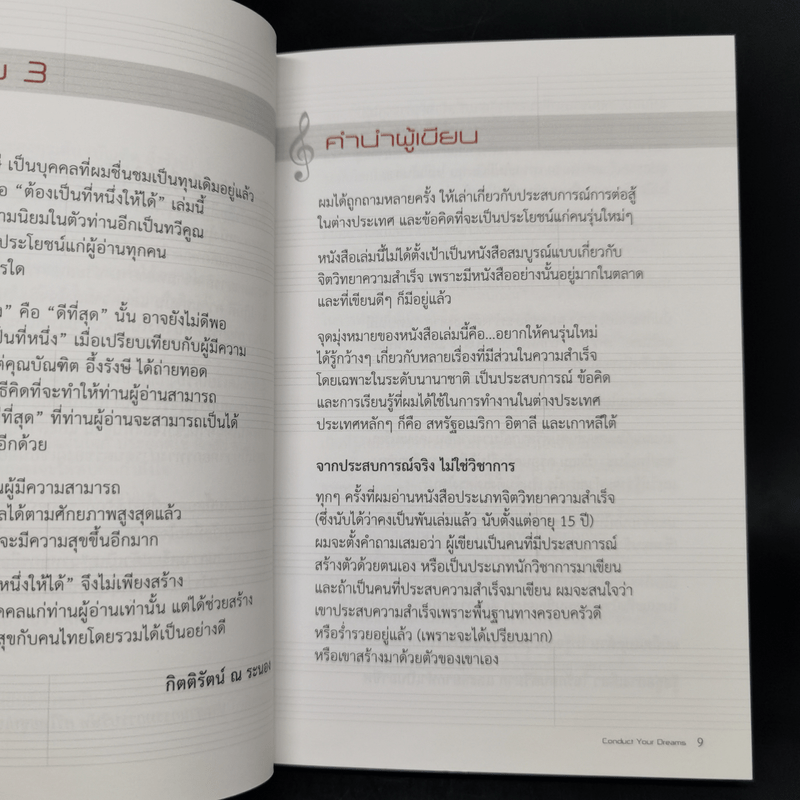 3
เป็นบุคคลที่ผมชื่นชมเป็นทุนเดิมอยู่แล้ว
“ต้องเป็นที่หนึ่งให้ได้” เล่มนี้
ามนิยมในตัวท่านอีกเป็นทวีคูณ
ประโยชน์แก่ผู้อ่านทุกคน
รใด
” คือ “ดีที่สุด” นั้น อาจยังไม่ดีพอ
ป็นที่หนึ่ง” เมื่อเปรียบเทียบกับผู้มีความ
ต่คุณบัณฑิต อึ้งรังษี ได้ถ่ายทอด
ธีคิดที่จะทำให้ท่านผู้อ่านสามารถ
ที่สุด” ที่ท่านผู้อ่านจะสามารถเป็นได้
อีกด้วย
ผู้มีความสามารถ
ลได้ตามศักยภาพสูงสุดแล้ว
จะมีความสุขขึ้นอีกมาก
หนึ่งให้ได้” จึงไม่เพียงสร้าง
คคลแก่ท่านผู้อ่านเท่านั้น แต่ได้ช่วยสร้าง
สุขกับคนไทยโดยรวมได้เป็นอย่างดี
กิตติรัตน์ ณ ระนอง
คำนำผู้เขียน
ผมได้ถูกถามหลายครั้ง ให้เล่าเกี่ยวกับประสบการณ์การต่อสู้
ในต่างประเทศ และข้อคิดที่จะเป็นประโยชน์แก่คนรุ่นใหม่ๆ
หนังสือเล่มนี้ไม่ได้ตั้งเป้าเป็นหนังสือสมบูรณ์แบบเกี่ยวกับ
จิตวิทยาความสำเร็จ เพราะมีหนังสืออย่างนั้นอยู่มากในตลาด
และที่เขียนดีๆ ก็มีอยู่แล้ว
จุดมุ่งหมายของหนังสือเล่มนี้คือ...อยากให้คนรุ่นใหม่
ได้รู้กว้างๆ เกี่ยวกับหลายเรื่องที่มีส่วนในความสำเร็จ
โดยเฉพาะในระดับนานาชาติ เป็นประสบการณ์ ข้อคิด
และการเรียนรู้ที่ผมได้ใช้ในการทำงานในต่างประเทศ
ประเทศหลักๆ ก็คือ สหรัฐอเมริกา อิตาลี และเกาหลีใต้
จากประสบการณ์จริง ไม่ใช่วิชาการ
ทุกๆ ครั้งที่ผมอ่านหนังสือประเภทจิตวิทยาความสำเร็จ
(ซึ่งนับได้ว่าคงเป็นพันเล่มแล้ว นับตั้งแต่อายุ 15 ปี)
ผมจะตั้งคำถามเสมอว่า ผู้เขียนเป็นคนที่มีประสบการณ์
สร้างตัวด้วยตนเอง หรือเป็นประเภทนักวิชาการมาเขียน
และถ้าเป็นคนที่ประสบความสำเร็จมาเขียน ผมจะสนใจว่า
เขาประสบความสำเร็จเพราะพื้นฐานทางครอบครัวดี
หรือร่ำรวยอยู่แล้ว (เพราะจะได้เปรียบมาก)
หรือเขาสร้างมาด้วยตัวของเขาเอง
Conduct Your Dreams 9